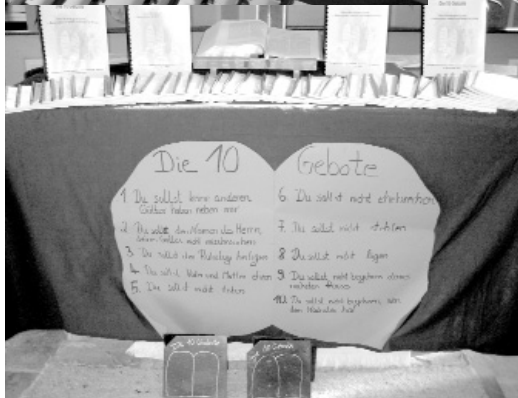 Die 10 Gebote
1. Du sollst keine anderen
Götter haben neben mir
2. Du sollst den Namen des Herrn,
deines Gottes, nicht missbrauchen
3. Du sollst den Ruhetag heiligen
4. Du sollst Vater und Mutter ehren
5. Du sollst nicht töten
6. Du sollst nicht ehebrechen
7. Du sollst nicht stehlen
8. Du sollst nicht lügen
9. Du sollst nicht begehren deines
nächsten Haus
10. Du sollst nicht begehren, was
dein Nächster hat
Die 10 Gebote
10 Gebote